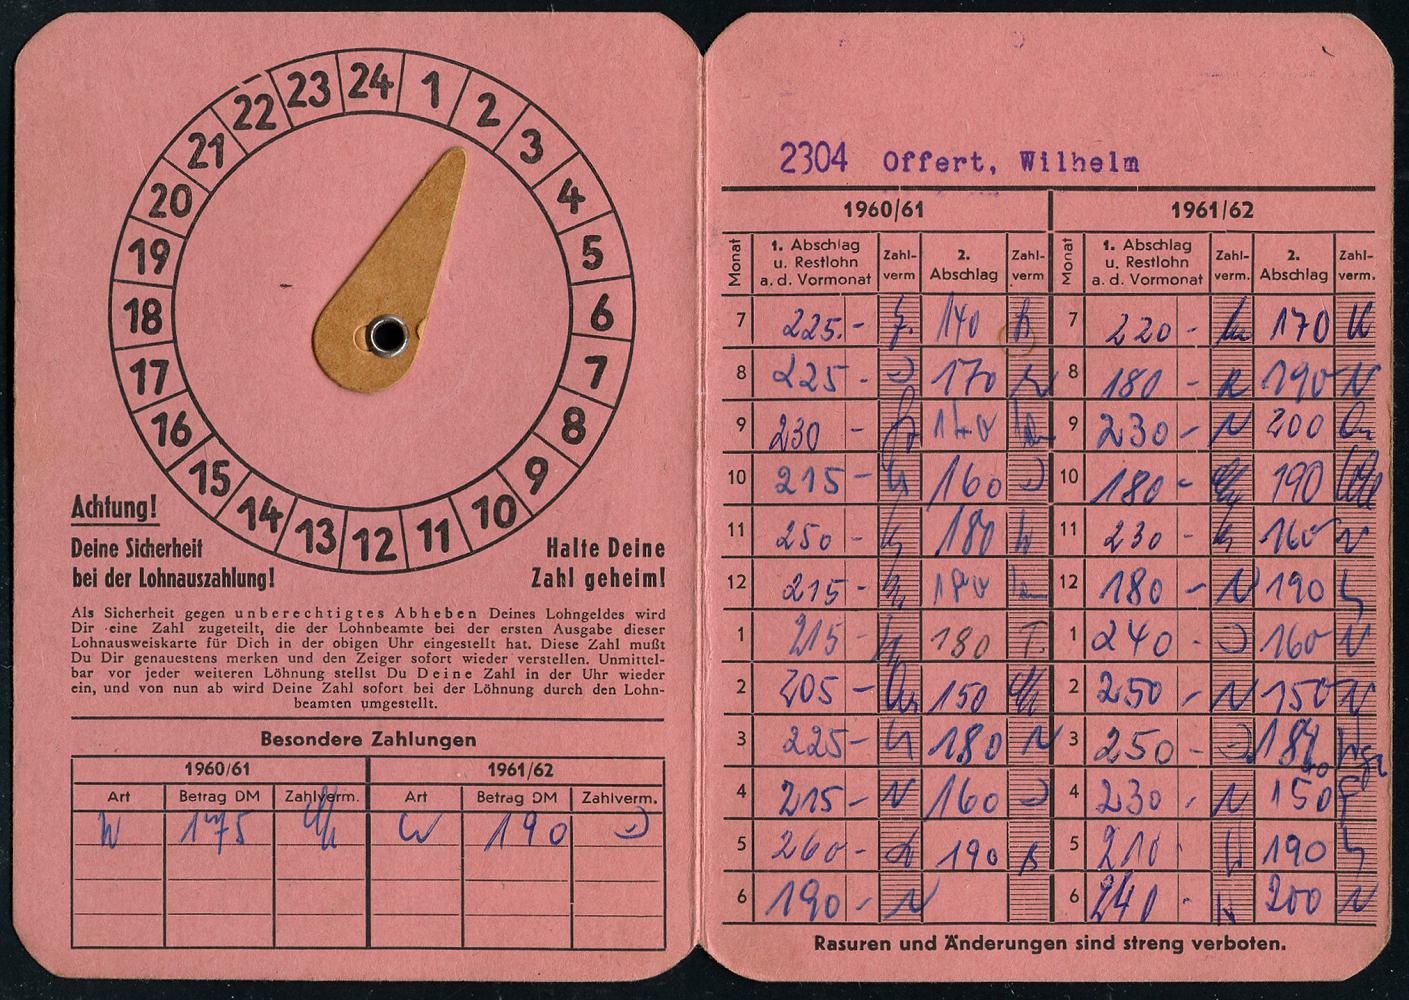 24
1
2
3
4
5
6
7
8
9
10
11
12
13
14
15
16
17
18
19
20
21
22
23
Achtung!
Deine Sicherheit
bei der Lohnauszahlung!
Halte Deine
Zahl geheim!
Als Sicherheit gegen unberechtigtes Abheben Deines Lohngeldes wird
Dir eine Zahl zugeteilt, die der Lohnbeamte bei der ersten Ausgabe dieser
Lohnausweiskarte für Dich in der obigen Uhr eingestellt hat. Diese Zahl mußt
Du Dir genauestens merken und den Zeiger sofort wieder verstellen. Unmittel-
bar vor jeder weiteren Löhnung stellst Du Deine Zahl in der Uhr wieder
ein, und von nun ab wird Deine Zahl sofort bei der Löhnung durch den Lohn-
beamten umgestellt.
Besondere Zahlungen
1960/61 1961/62
Art Betrag DM Zahlverm. Art Betrag DM Zahlverm.
W 175 W 190
2304 Offert, Wilhelm
1960/61 1961/62
Monat 1. Abschlag u. Restlohn a. d. Vormonat Zahl-verm 2. Abschlag Zahl-verm Monat 1. Abschlag u. Restlohn a. d. Vormonat Zahl-verm. 2. Abschlag Zahl-verm.
7 225.- 140 7 220 - 170
8 225 - 170 8 180 - 190
9 230 - 140 9 230 - 200
10 215 - 160 10 180 - 190
11 250 - 180 11 230 - 160
12 215 - 180 12 180 - 190
1 215 - 180 1 240 - 160
2 205 - 150 2 250 - 150
3 225 - 180 3 250 -
4 215 - 160 4 230 - 150
5 260 - 190 5 210 190
6 190 - 6 240 - 200
Rasuren und Änderungen sind streng verboten.